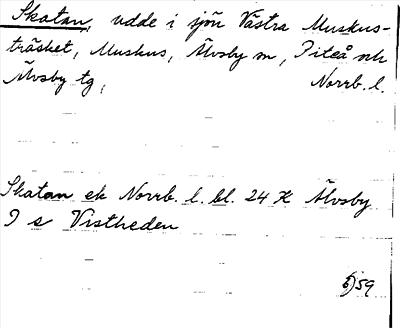 Skatan, udde i sjön Västra Muskus-
träsket, Muskus, Älvsby sn, Piteå och
Älvsby tg, Norrb. l.
Skatan ek Norrb. l. bl. 24 K Älvsby
I s Vistheden
59